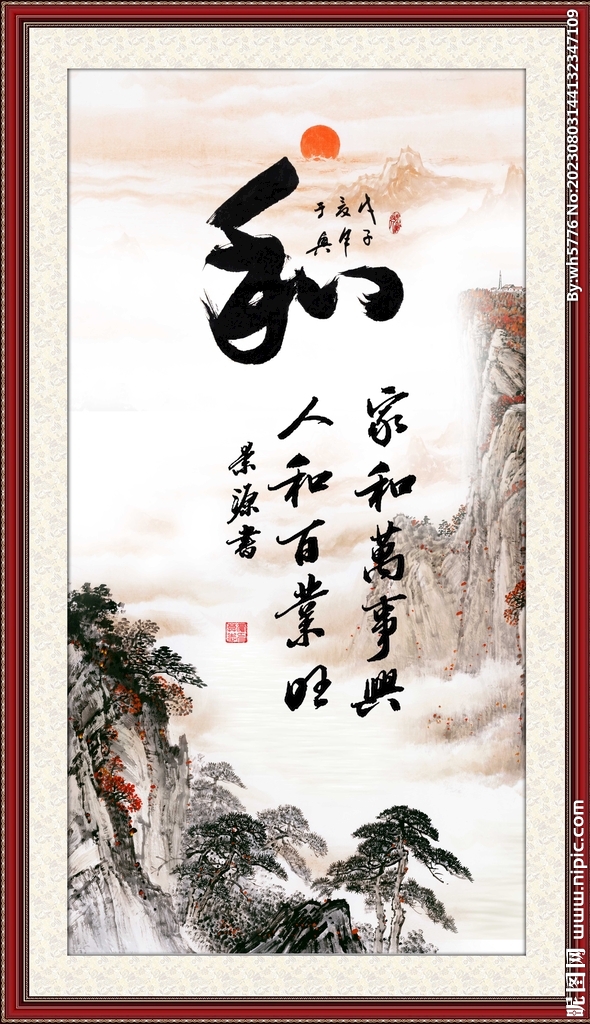 和
戊子
夏年
于奥
家和萬事興
人和百業旺
景源書
By:wh5776 No:20230803144132347109
昵图网 www.nipic.com